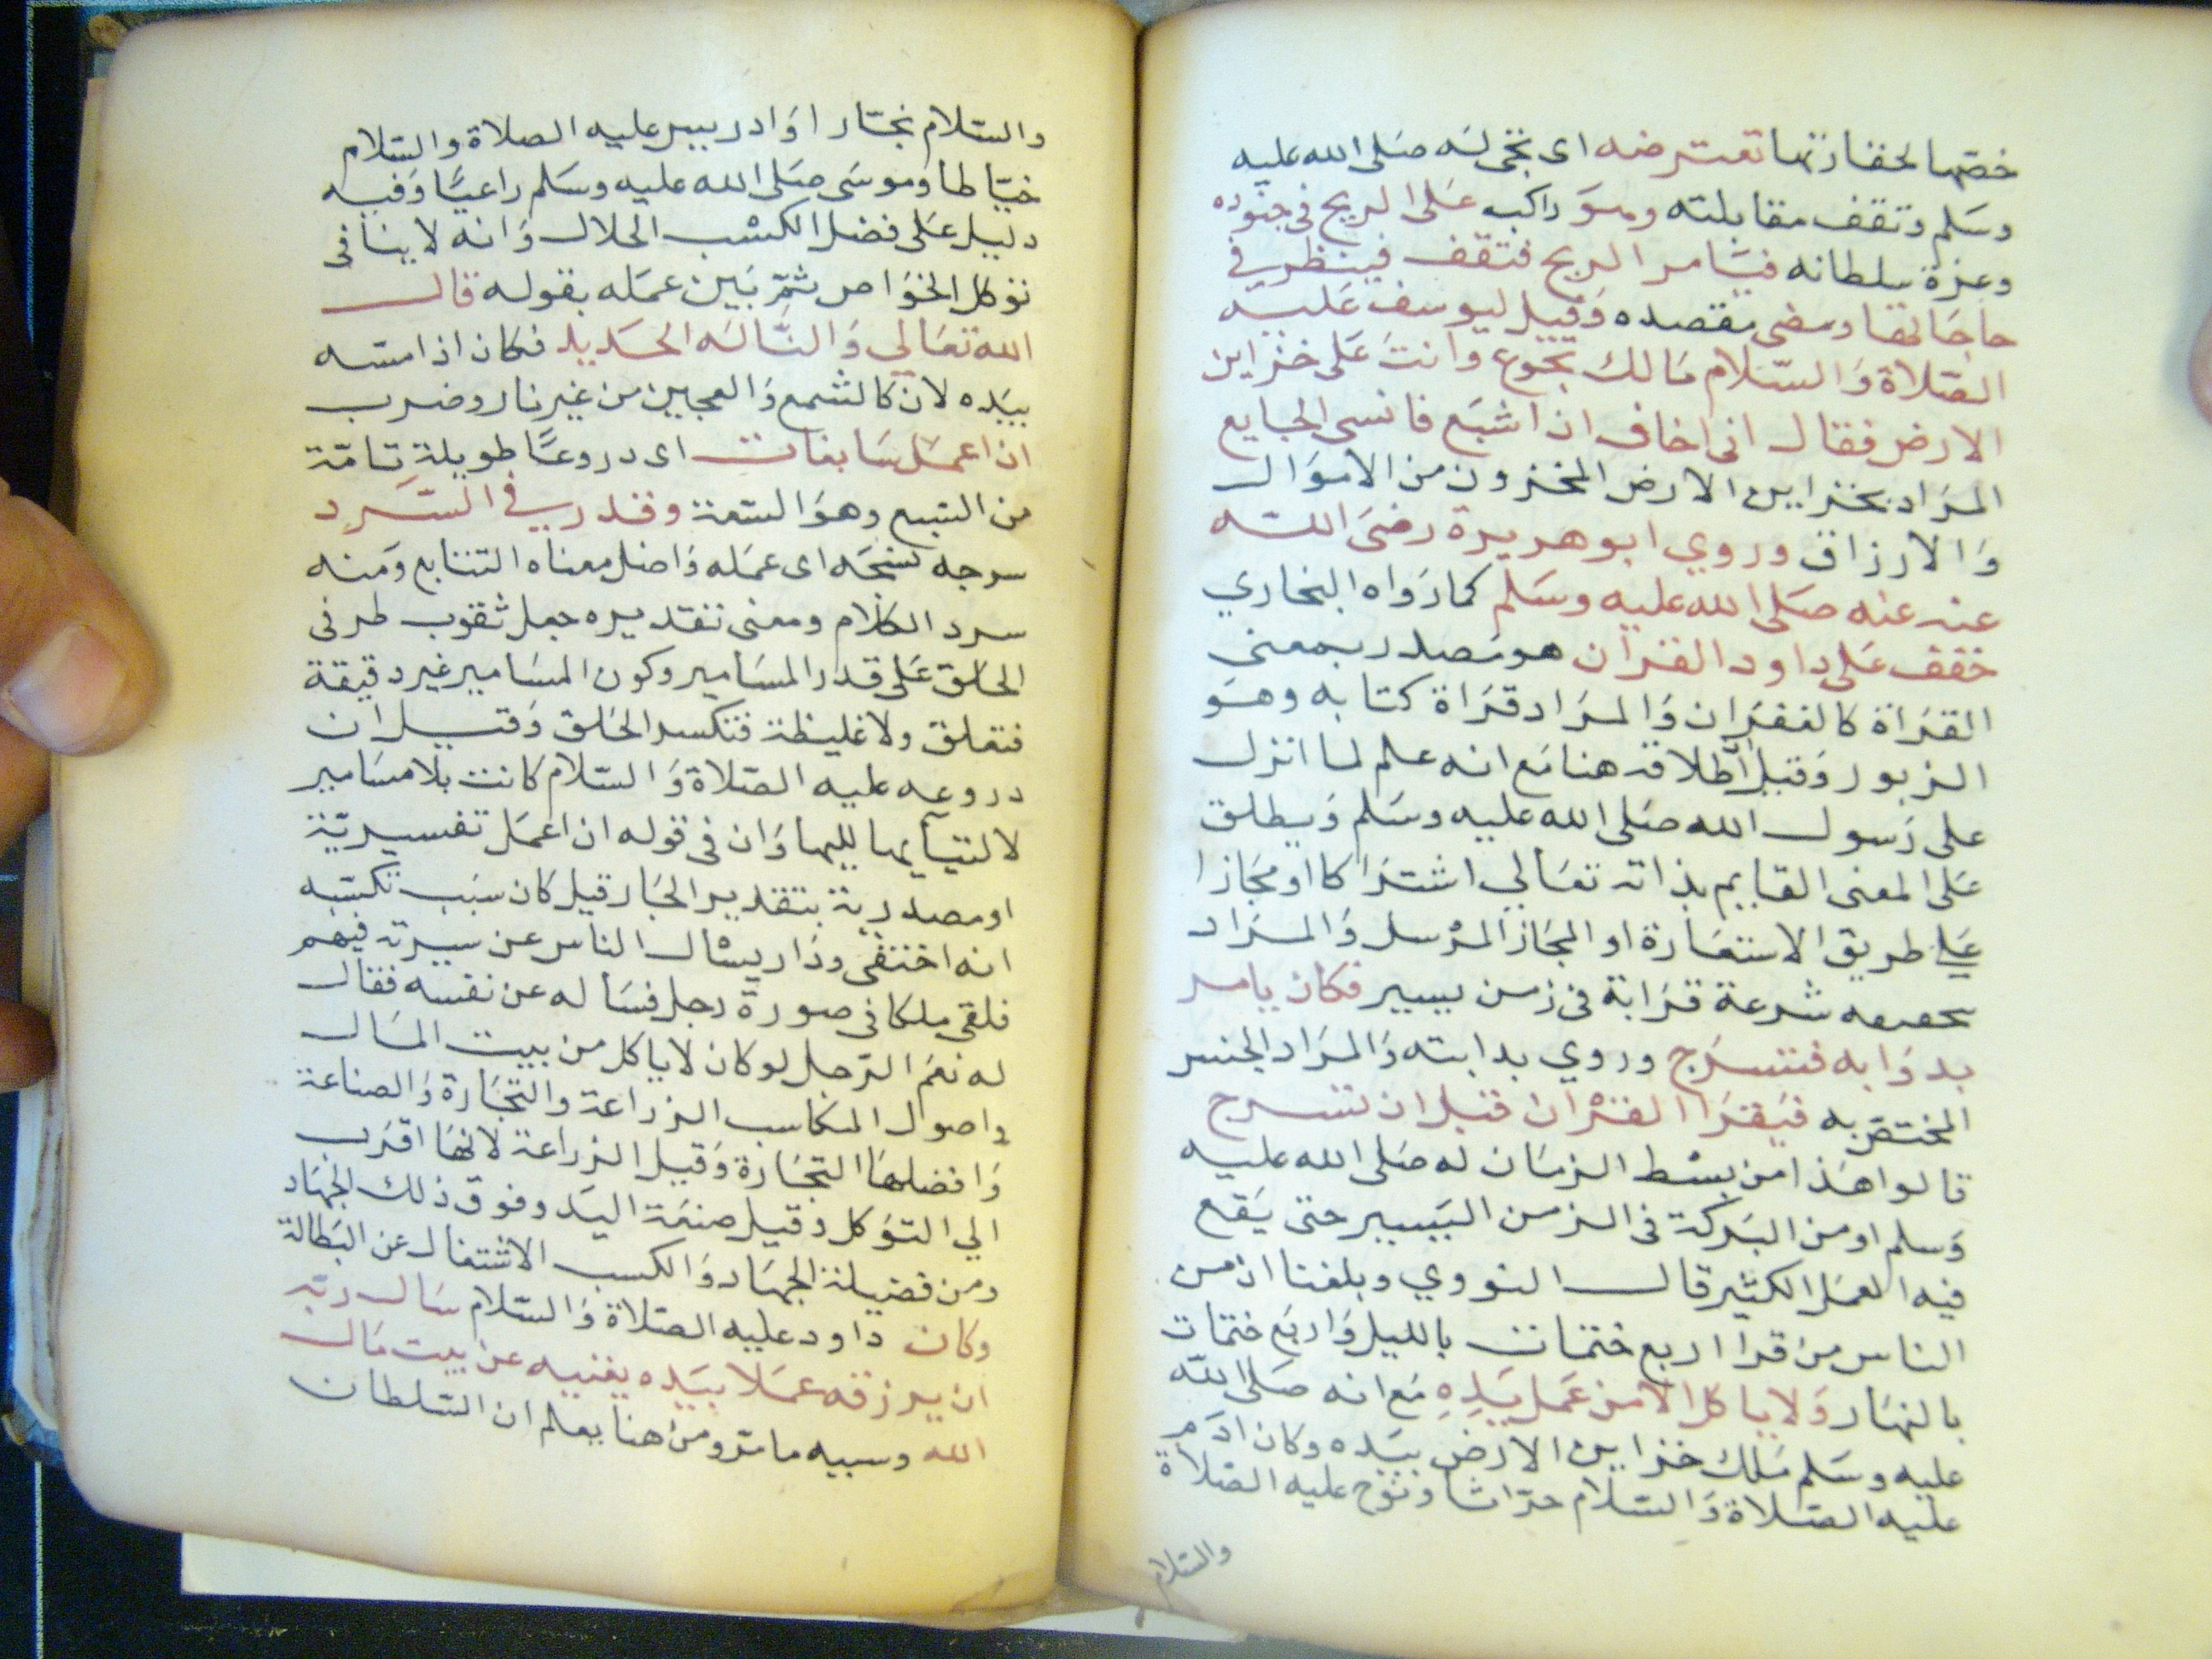 خصّها لحقارتها تعترضه اى تجى له صَلى الله عليه
وسَلم وتقف مقابلته وهوَ راكب عَلى الريح فى جنوده
وعزة سلطانه فيَامر الريح فتقف فينظر في
حاجَاتها ويمضى بمقصده وَقيل ليوسف عَليه
الصّلاة وَالسّلام مَالك تجوع وانتَ عَلى خزاين
الارض فقال انى اخاف ان اشبَع فانسى الجايع
المرَاد بخزاين الارض المخزون من الاموَال
وَالارزاق وروي ابو هريرة رضىَ الله
عنه عنه صَلى الله عليه وسَلم كمارَواه البخاري
خفف عَلى داود القرآن هو مَصدر بمعنى
القرَاة كالغفرَان وَالمرَاد قرَاة كتابه وهوَ
الزبور وَقيل اطلاقه هنا مَع انه علم لما انزل
على رَسول الله صَلى الله عليه وسَلم وَيطلق
عَلى المعنى القايم بذاته تعَالي اشتَراكا او مجَازا
عَلي طريق الاستعَارة او المجَاز المرْسل وَالمرَاد
شرعة قرَاته فى زمن يسير فكان يامر
بدوَابه فتسرَج وروي بدابته وَالمرَاد الجنس
المختصّ به فيَقرَا القرْان قبل ان تسرج
قالوا هَذا من بسْط الزمَان له صَلى الله عليه
وَسلم او من البَركة فى الزمن اليَسير حتى يَقع
فيه العمَل الكثير قال النووي وبلغنا ان من
الناس من قرا اربع ختمَات بالليل وَاربَع ختمات
بالنهَار وَلا ياكل الا من عَمل يَدِهِ مَع انه صَلى اللّه
عليه وسَلم مَلك خزاين الارض بيَده وكان ادَم
عليه الصّلاة وَالسّلام حرّاثا ونوح عليه الصّلاة
والسّلام
والسّلام نجّارا وَادريس عليه الصلاة والسّلام
خيّاطا وَموسَى صَلى الله عليه وسَلم راعيًا وَفيه
دليل عَلى فضل الكسْب الحلال وَانه لا ينافى
توكل الخوَاص ثمّ بَين عمَله بقوله قال
الله تعَالي وَالنّا لَه الحَديد فكان اذا مسّه
بيَده لان كالشمع وَالعجين من غير نار وضرب
ان اعمَل سَابغات اى دروعًا طويلة تامّة
من السّبع وهوَ السّعة وقدر في السَّرد
سرجه نسْجَه اى عمَله وَاصل معناه التتابع وَمنه
سرد الكلام ومعنى تقديره جعل ثقوب طرفى
الحَلق عَلى قدر المسَامير وكون المسَامير غير دقيقة
فتقلق ولا غليظة فتكسر الحَلق وَقيل ان
دروعه عليه الصّلاة وَالسّلام كانت بلا مسَامير
لالتيَامها لليها وَان فى قوله ان اعمَل تفسيريّة
او مصدرية بتقدير الجَار قيل كان سَبب تكسّبه
انه اختفى ودَار يسْال الناس عن سيرته فيهم
فلقى ملكا فى صورة رجل فسَاله عن نفسه فقال
له نعَم الرّجل لو كان لا ياكل من بيت المَال
واصول المكاسب الزراعة والتجَارة وَالصناعة
وَافضلهَا التجَارة وَقيل الزراعة لانهَا اقرَب
الي التوَكل وَقيل صنعَة اليَد وفوق ذلك الجهَاد
ومن فضيلة الجهَاد وَالكسب الاشتغال عن البَطالة
وكان داود عليه الصّلاة وَالسّلام سَال ربّه
ان يرزقه عمَلا بيَده يغنيه عن بيت مَال
الله وسببه ما مرّ ومن هنا يعلم ان السّلطان